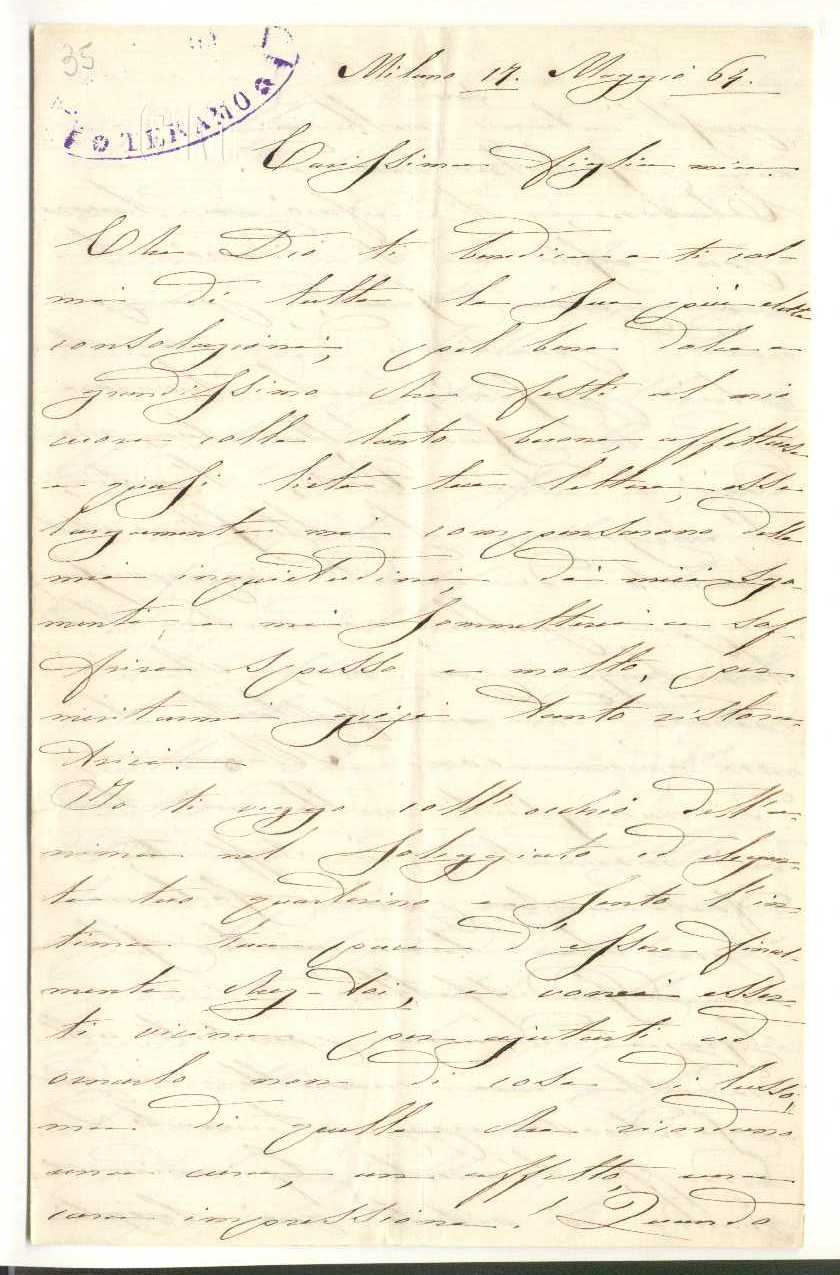 35
TERAMO
Milano 17. Maggio 64.
Carissima figlia mia.
Che Dio ti benedica e ti col-
mi di tutte le sue più elette
consolazioni, pel bene dolce e
grandissimo che festi al mio
cuore colle tanto buone, affettuose
e quasi liete tue lettere, esse
largamente mi compensarono delle
mie inquietudini, de' miei sgo-
menti, e mi sommetterei a sof-
frire spesso e molto, per
meritarmi gioje tanto ristora-
trici.
Io ti veggo coll'occhio dell'a-
nima nel soleggiato ed elegan-
te tuo quartierino e sento l'in-
tima tua pace d'essere final-
mente chez-toi, e vorrei esser-
ti vicina per ajutarti ad
ornarlo non di cose di lusso,
ma di quelle che ricordano
una cura, un affetto, una
cara impressione! Quando